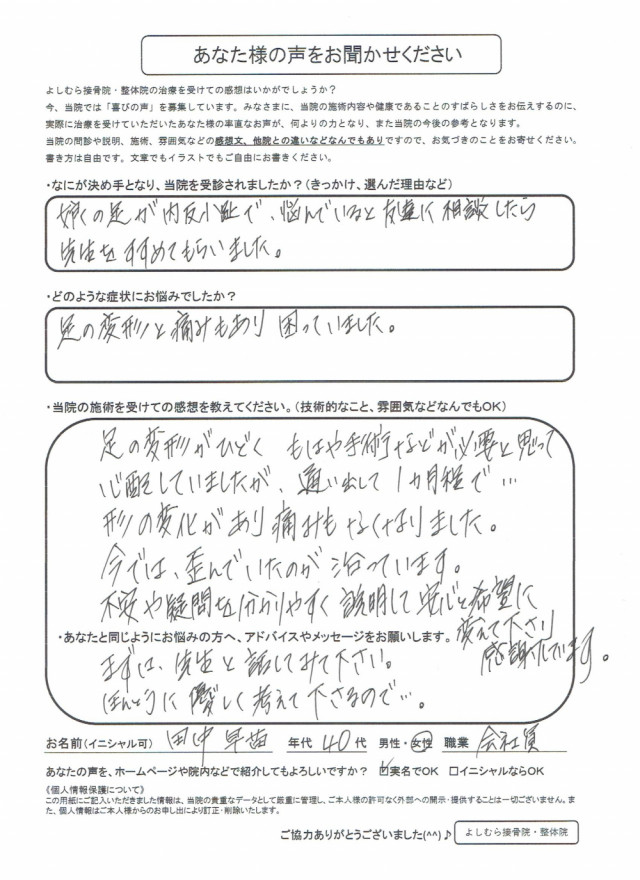 あなた様の声をお聞かせください
よしむら接骨院・整体院の治療を受けての感想はいかがでしょうか?
今、当院では「喜びの声」を募集しています。みなさまに、当院の施術内容や健康であることのすばらしさをお伝えするのに、
実際に治療を受けていただいたあなた様の率直なお声が、何よりの力となり、また当院の今後の参考となります。
当院の問診や説明、施術、雰囲気などの感想文、他院との違いなどなんでもありですので、お気づきのことをお寄せください。
書き方は自由です。文章でもイラストでもご自由にお書きください。
・なにが決め手となり、当院を受診されましたか?(きっかけ、選んだ理由など)
娘の足が内反小趾で、悩んでいると友達に相談したら
先生をすすめてもらいました。
・どのような症状にお悩みでしたか?
足の変形と痛みもあり困っていました。
・当院の施術を受けての感想を教えてください。(技術的なこと、雰囲気などなんでもOK)
足の変形がひどく もはや手術などが必要と思って
心配していましたが、通い出して1ヵ月程で…
形の変化があり痛みもなくなりました。
今では、歪んでいたのが治っています。
不安や疑問を分かりやすく説明して安心と希望に
変えて下さり
感謝しています。
・あなたと同じようにお悩みの方へ、アドバイスやメッセージをお願いします。
まずは、先生と話してみて下さい。
ほんとうに優しく考えて下さるので…。
お名前(イニシャル可) 田中 早苗 年代 40代 男性・女性 職業 会社員
あなたの声を、ホームページや院内などで紹介してもよろしいですか? ☑実名でOK □イニシャルならOK
《個人情報保護について》
この用紙にご記入いただきました情報は、当院の貴重なデータとして厳重に管理し、ご本人様の許可なく外部への開示・提供することは一切ございません。ま
た、個人情報はご本人様からのお申し出により訂正・削除いたします。
ご協力ありがとうございました(^^)♪ よしむら接骨院・整体院